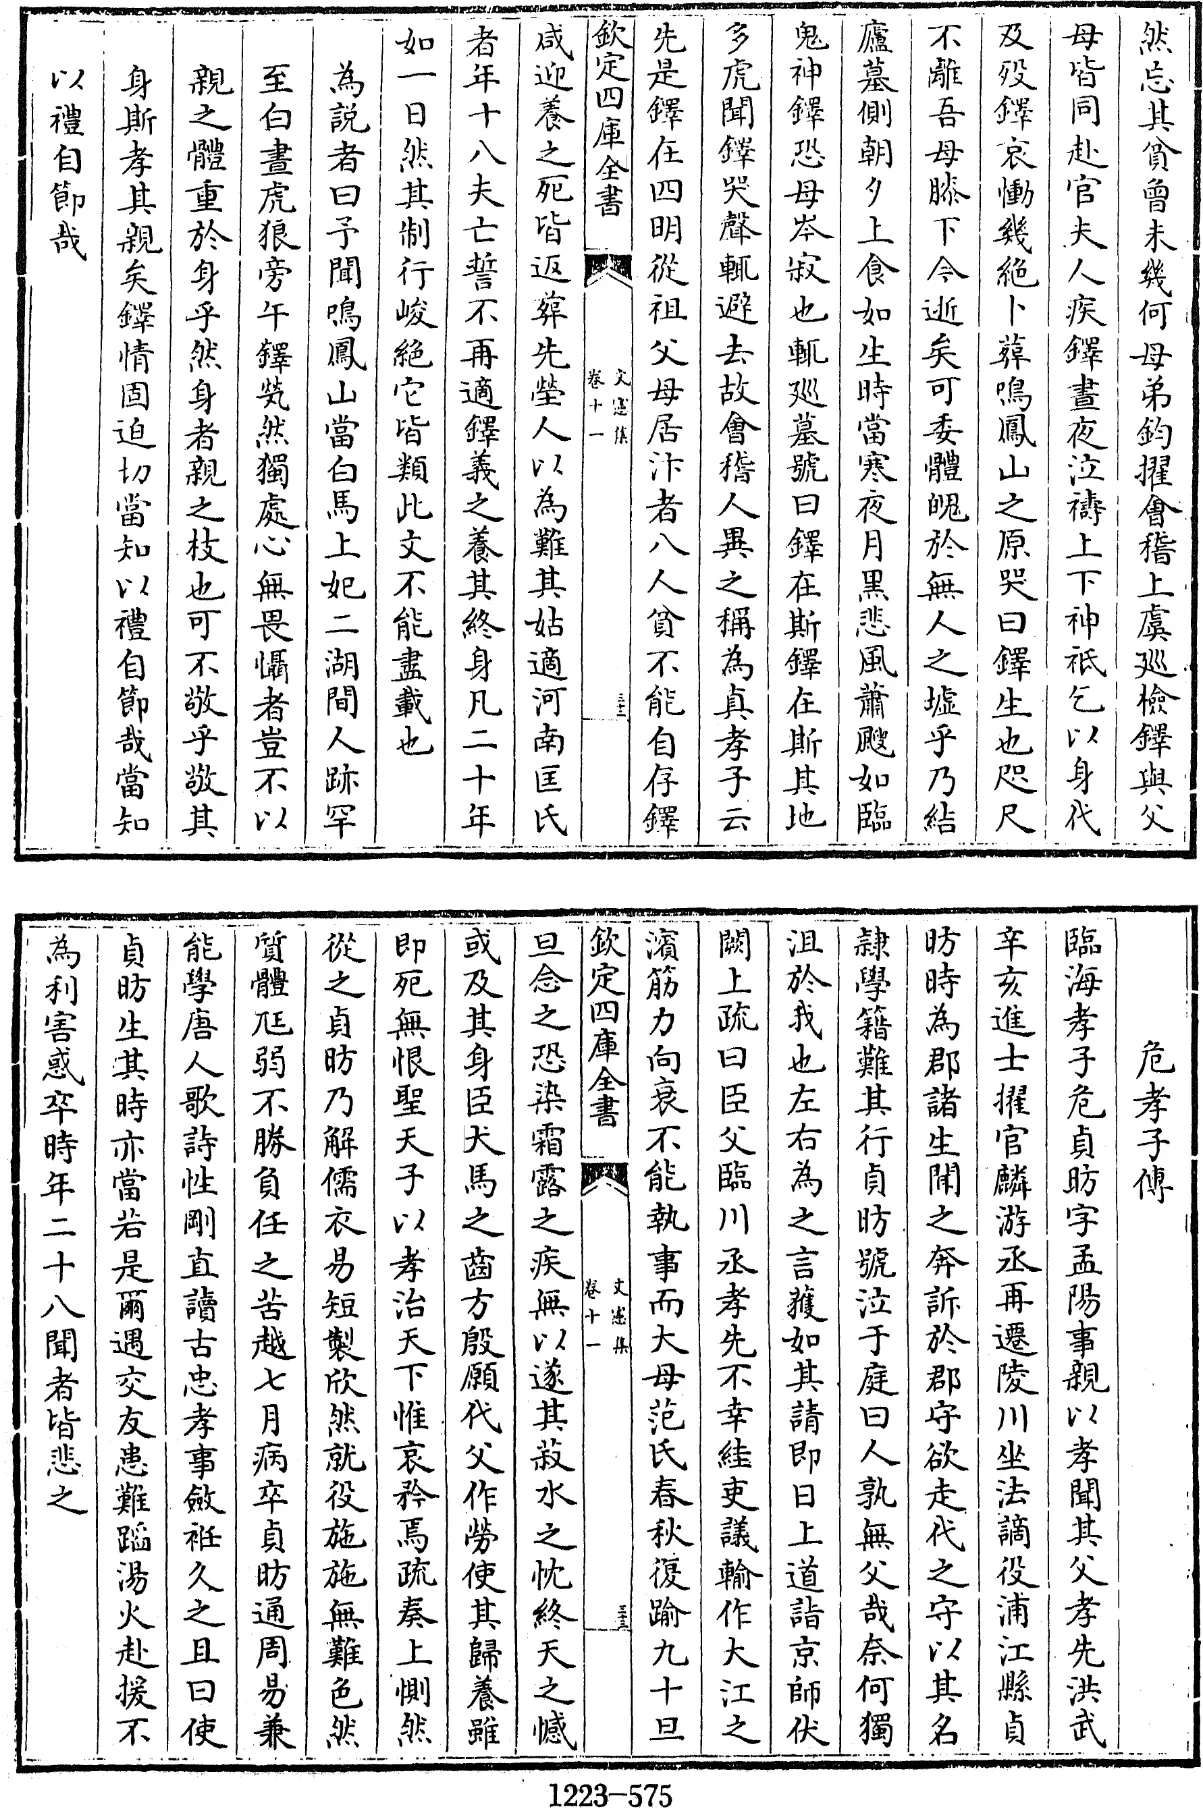 然忘其貧曾未幾何母弟鈞擢會稽上虞廵檢鐸與父
母皆同赴官夫人疾鐸晝夜泣禱上下神祇乞以身代
及殁鐸哀慟幾絕卜葬鳴鳳山之原哭曰鐸生也咫尺
不離吾母膝下今逝矣可委體魄於無人之墟乎乃結
廬墓側朝夕上食如生時當寒夜月黑悲風蕭颼如臨
鬼神鐸恐母岑寂也輒廵墓號曰鐸在斯鐸在斯其地
多虎聞鐸哭聲輒避去故會稽人異之稱為真孝子云
先是鐸在四明從祖父母居汴者八人貧不能自存鐸
欽定四庫全書
文憲集
卷十一
咸迎養之死皆返葬先塋人以為難其姑適河南匡氏
者年十八夫亡誓不再適鐸義之養其終身凡二十年
如一日然其制行峻絕它皆類此文不能盡載也
為說者曰予聞鳴鳳山當白馬上妃二湖間人跡罕
至白晝虎狼旁午鐸煢然獨處心無畏懾者豈不以
親之體重於身乎然身者親之枝也可不敬乎敬其
身斯孝其親矣鐸情固迫切當知以禮自節哉當知
以禮自節哉
危孝子傳
臨海孝子危貞昉字孟陽事親以孝聞其父孝先洪武
辛亥進士擢官麟游丞再遷陵川坐法謫役浦江縣貞
昉時為郡諸生聞之奔訴於郡守欲走代之守以其名
隷學籍難其行貞昉號泣于庭曰人孰無父哉奈何獨
沮於我也左右為之言獲如其請即日上道詣京師伏
闕上疏曰臣父臨川丞孝先不幸絓吏議輸作大江之
濱筋力向衰不能執事而大母范氏春秋復踰九十旦
欽定四庫全書
文憲集
卷十一
旦念之恐染霜露之疾無以遂其菽水之忱終天之憾
或及其身臣犬馬之齒方殷願代父作勞使其歸養雖
即死無恨聖天子以孝治天下惟哀矜焉疏奏上惻然
從之貞昉乃解儒衣易短製欣然就役施施無難色然
質體尫弱不勝負任之苦越七月病卒貞昉通周易兼
能學唐人歌詩性剛直讀古忠孝事斂袵久之且曰使
貞昉生其時亦當若是爾遇交友患難蹈湯火赴援不
為利害惑卒時年二十八聞者皆悲之
1223-575